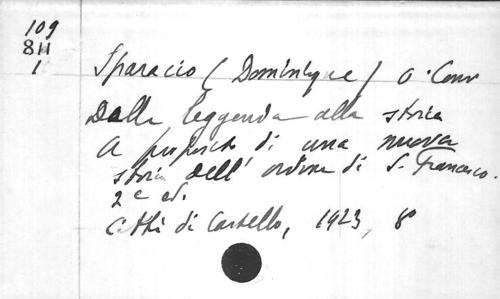 109
811
1
Sparacio (Dominique) O. Conv
Dalla leggenda alla storia
A proposito di una nuova
storia dell' ordine di S. Francesco.
2e ed.
Città di Castello, 1923, 8°